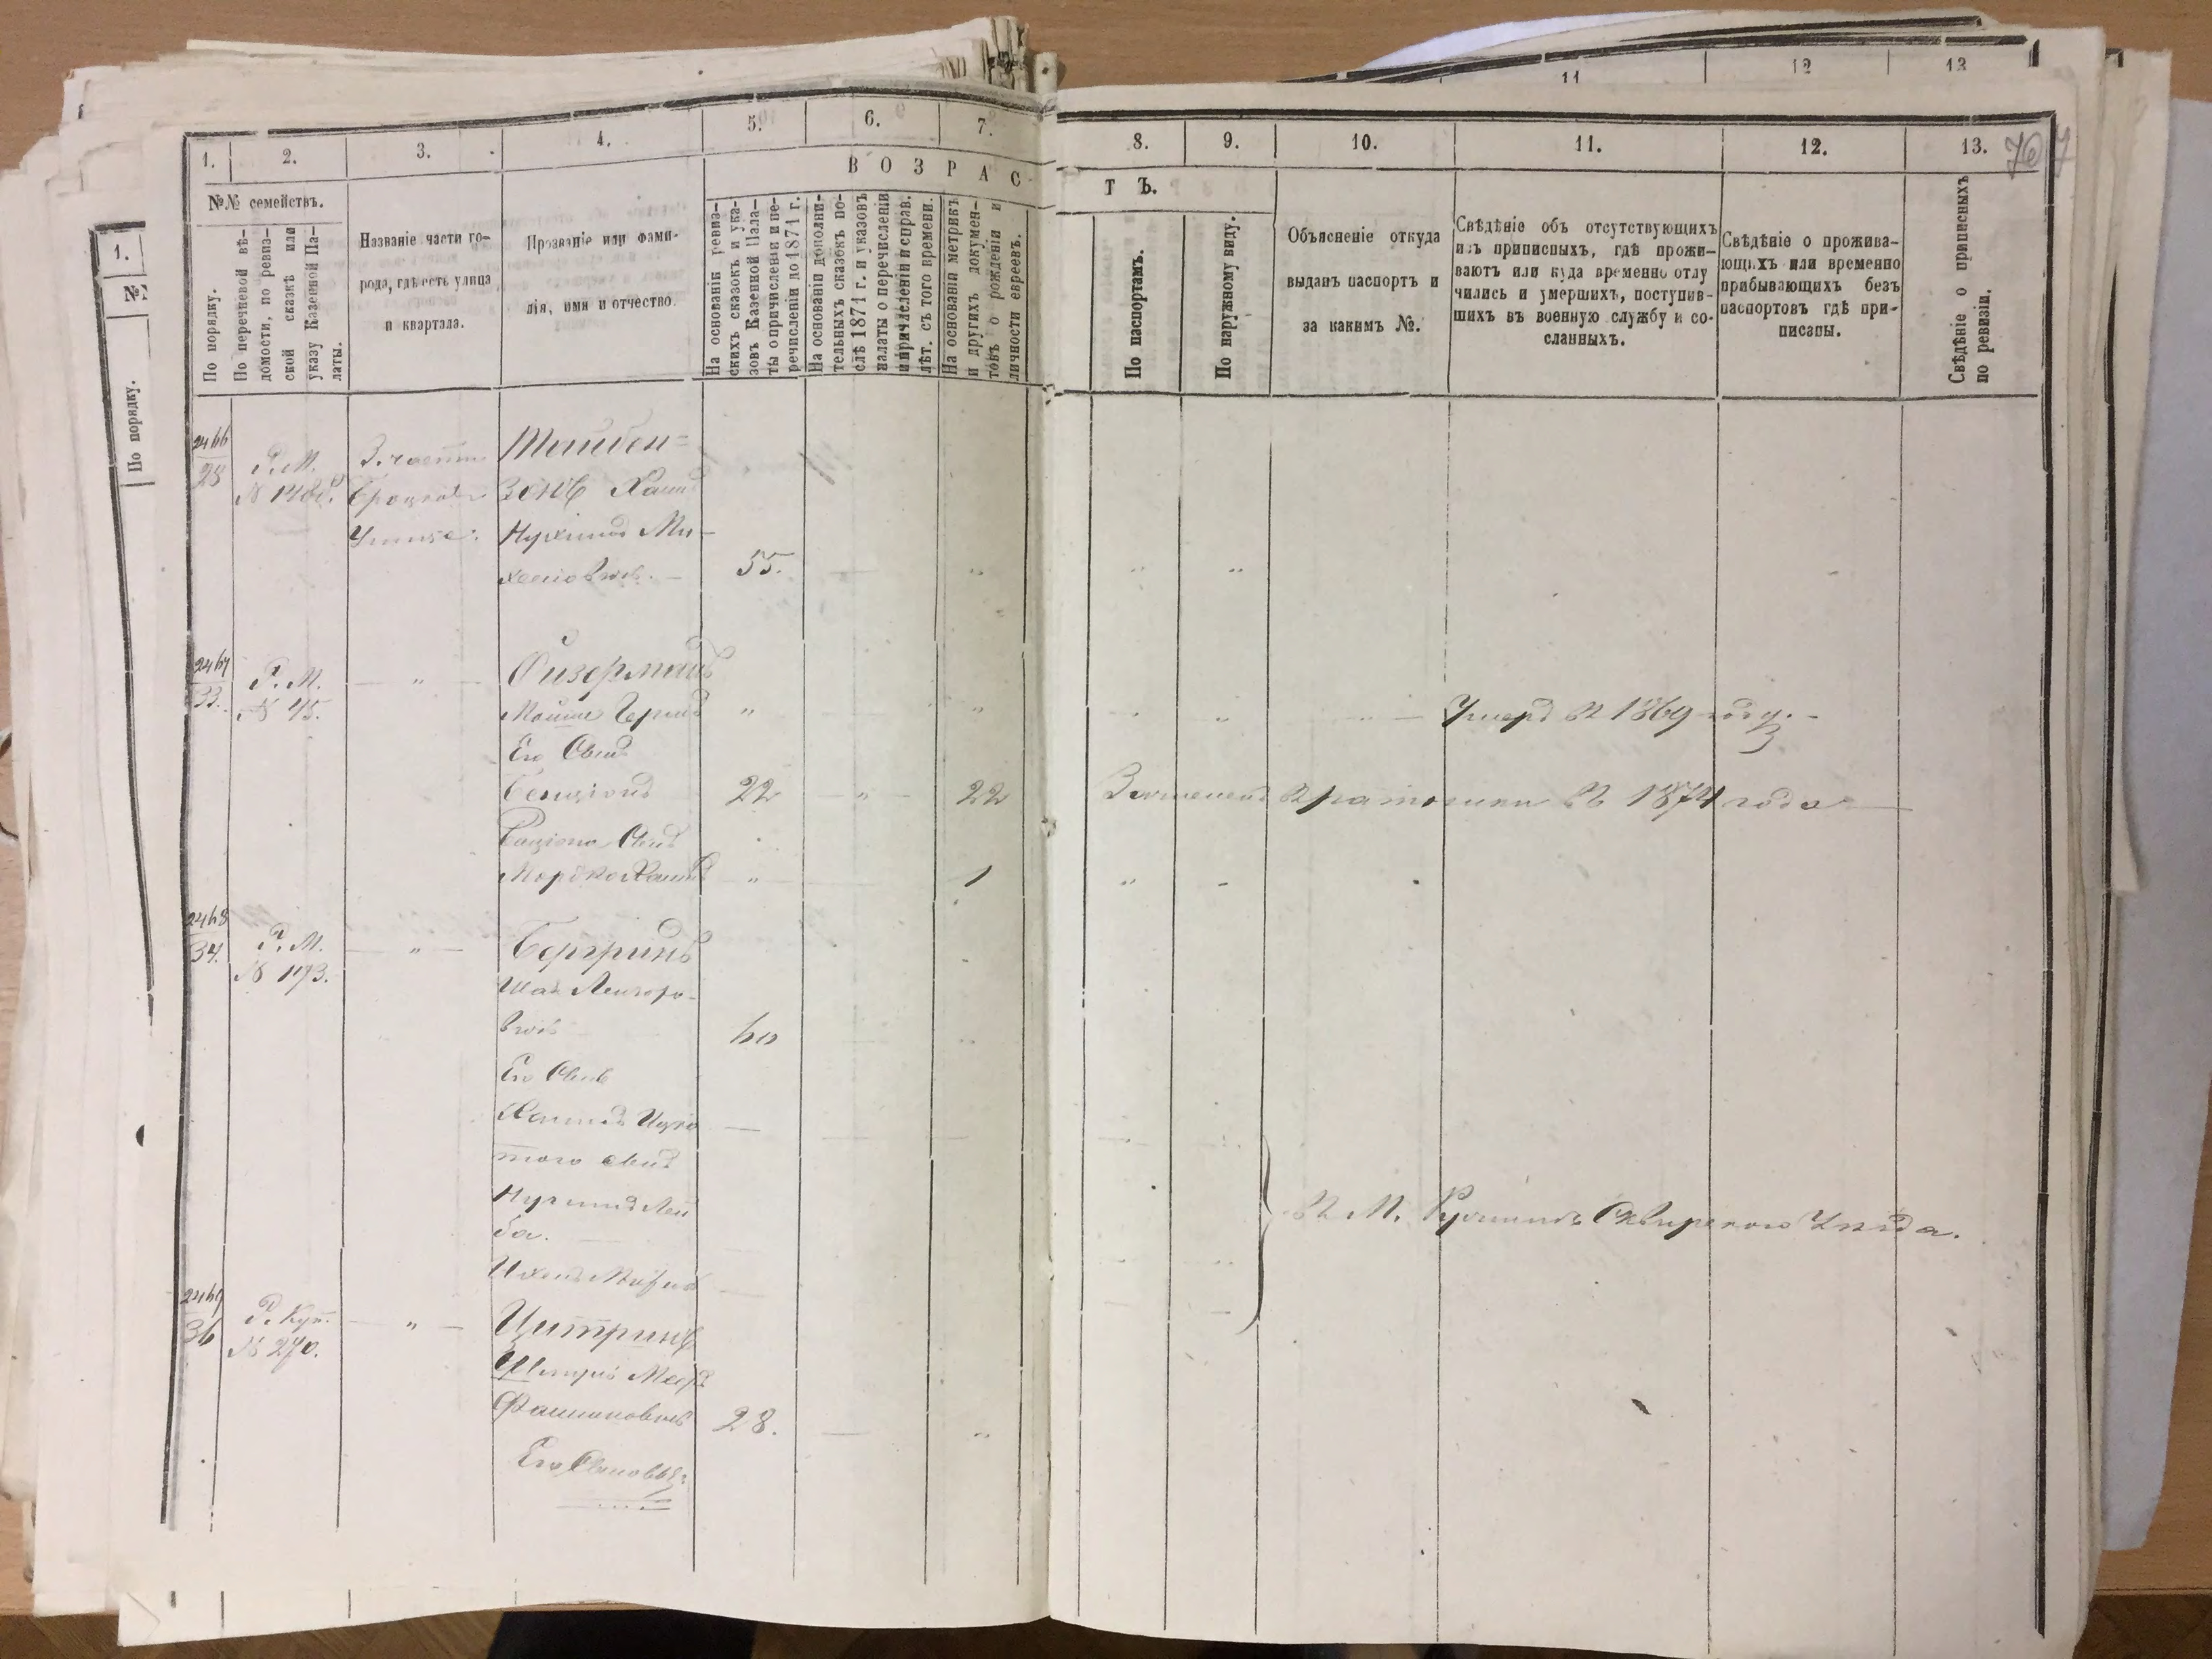 11
12
13
1.
2.
3.
4.
5.
6.
7.
8.
9.
10.
11.
12.
13.
76
В О З Р А С
Т Ъ.
№№ семействъ.
По порядку.
По перечневой вѣ-
домости, по ревиз-
ской сказкѣ или
указу Казенной Па-
латы.
Названіе части го-
рода, гдѣ есть улица
и квартала.
Прозваніе или фами-
лія, имя и отчество.
На основаніи ревиз-
скихъ сказокъ и ука-
зовъ Казенной Пала-
ты о причисленіи и пе-
речисленіи до 1871 г.
На основаніи дополни-
тельныхъ сказокъ по-
слѣ 1871 г. и указовъ
палаты о перечисленіи
и причисленіи и справ.
лѣт. съ того времени.
На основаніи метрикъ
и другихъ докумен-
товъ о рожденіи и
личности евреевъ.
По паспортамъ.
По наружному виду.
Объясненіе откуда
выданъ паспортъ и
за какимъ №.
Свѣдѣніе объ отсутствующихъ
изъ приписныхъ, гдѣ прожи-
ваютъ или куда временно отлу
чились и умершихъ, поступив-
шихъ въ военную службу и со-
сланныхъ.
Свѣдѣніе о прожива-
ющихъ или временно
прибывающихъ безъ
паспортовъ гдѣ при-
писаны.
Свѣдѣніе о приписныхъ
по ревизіи.
1.
№
По порядку.
2466
28
Р. М.
3. части
зонъ Хаимъ
Нухимъ Ми-
хелевичъ. 55.
2467
33.
Р. М.
№ 45.
Ойзерманъ
Мойше Герш
Умеръ въ 1869 году.
Его Сынъ
Бенціонъ 22 22
въ 1874 года
Бенціона Сынъ
Мордко Хаимъ 1
2468
34.
Р. М.
№ 1193.
Бергринъ
вичъ 60
Его Сынъ
Хаимъ Ицко
того сынъ
Нухимъ Лей
ба.
въ М. Ружинъ Сквирского Уѣзда.
2469
36
Р. Куп.
№ 270.
Цитринъ
28.
Его Сыновья: